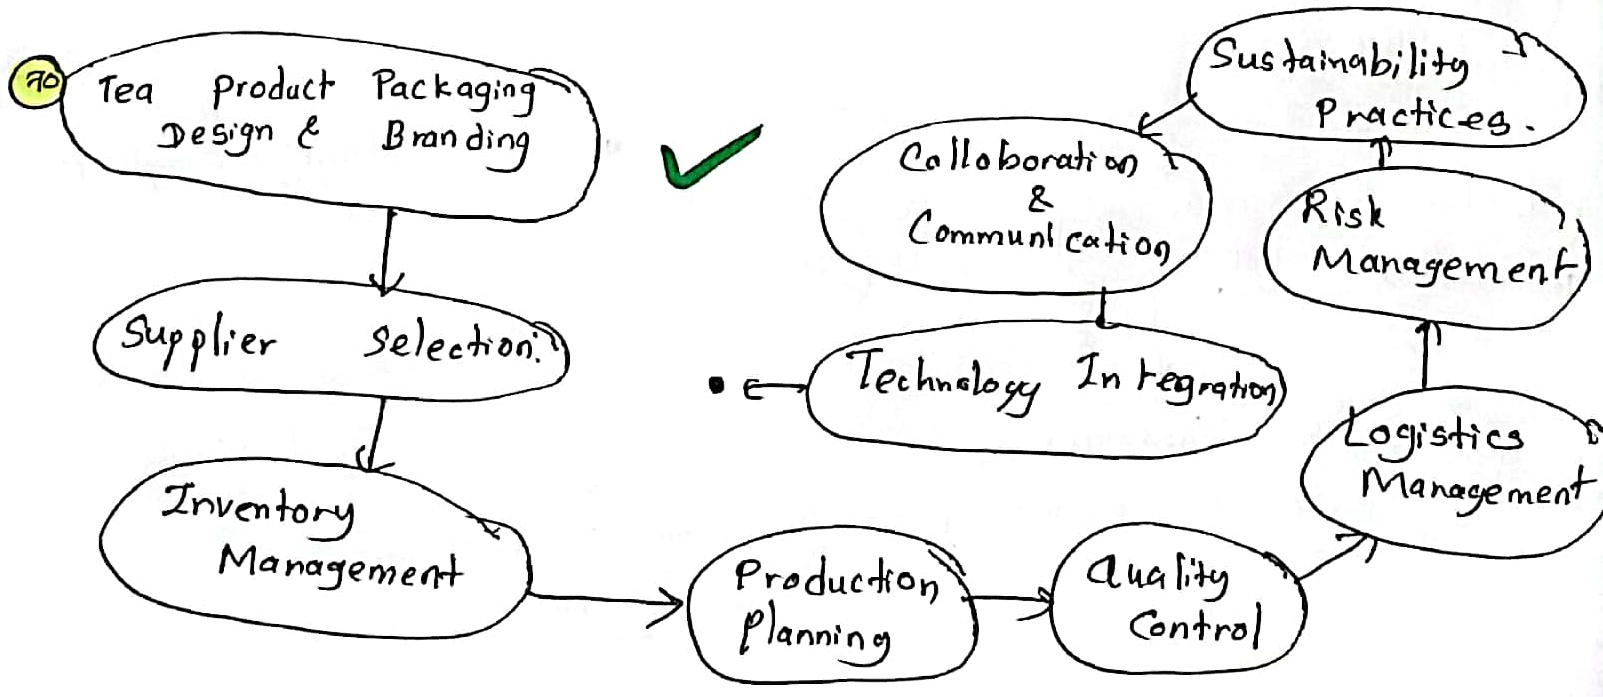 70
Tea Product Packaging
Design & Branding
Supplier Selection.
Inventory
Management
Production
Planning
Quality
Control
Logistics
Management
Risk
Management
Sustainability
Practices.
Colloboration
&
Communication
Technology Integration